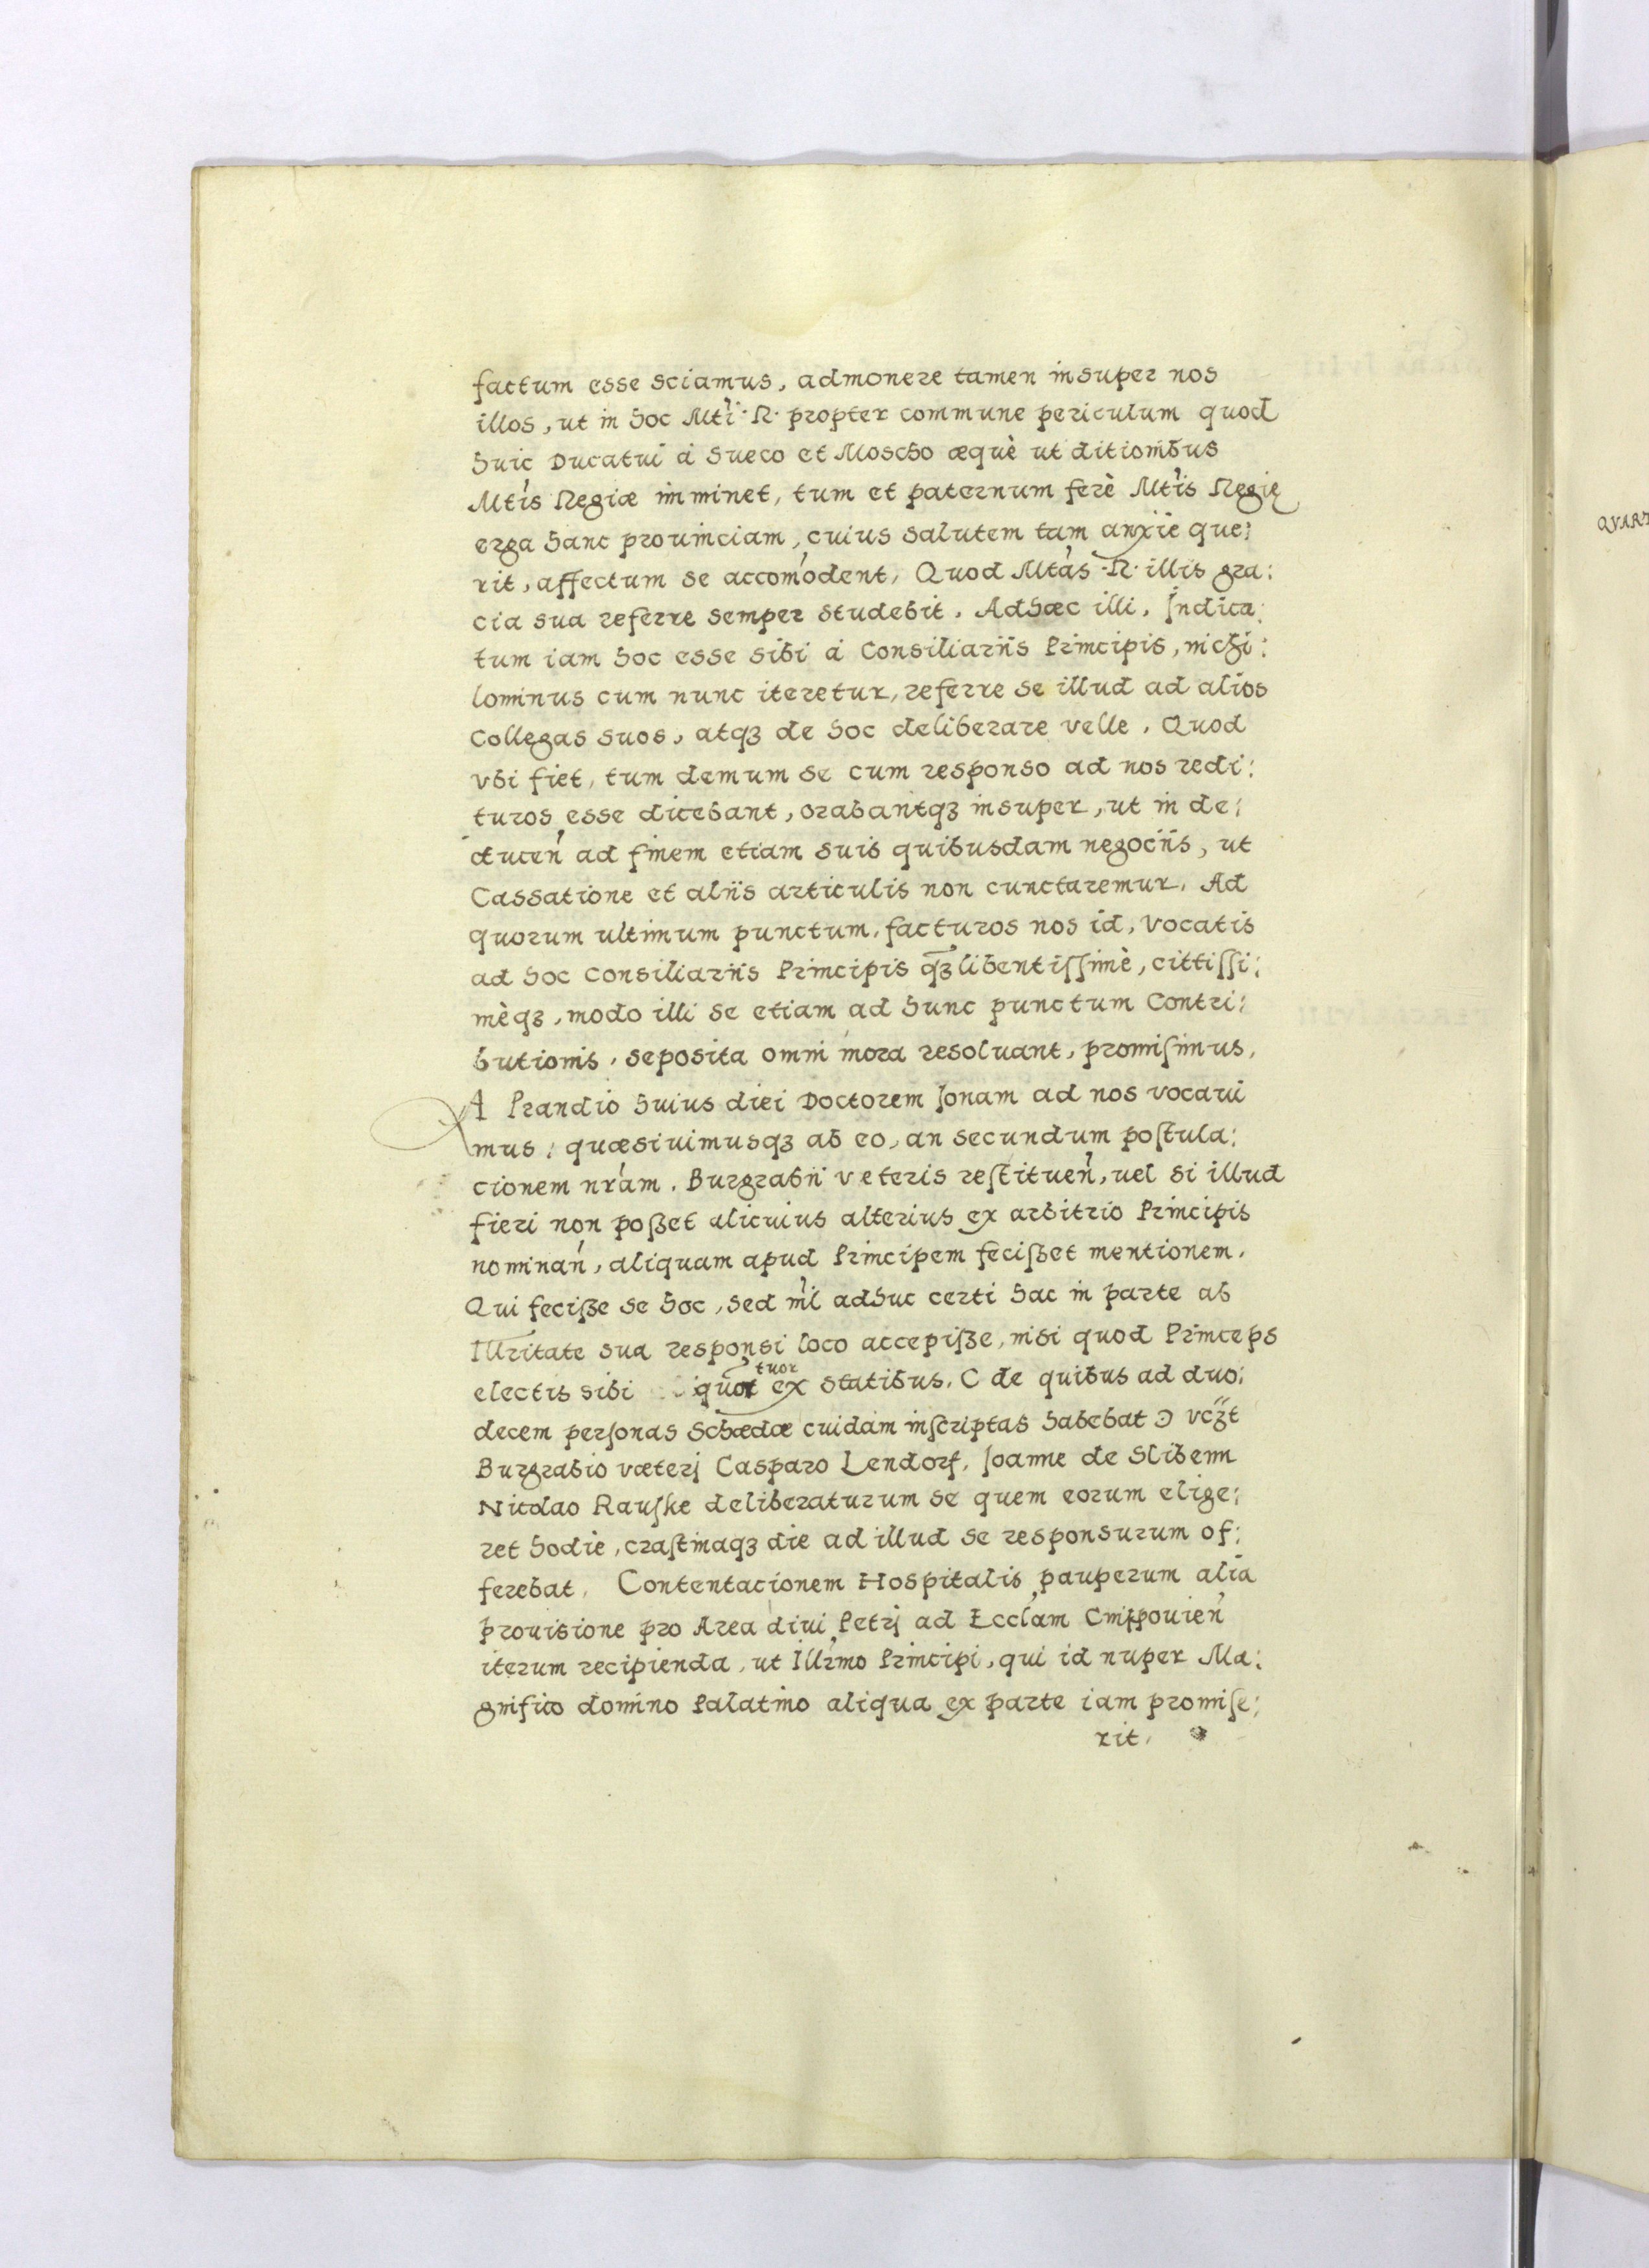 factum esse sciamus, admonere tamen insuper nos
illos, ut in hoc Mti R. propter commune periculum quod
huic Ducatui à Sueco et Moscho æquè ut ditionibus
Mtis Regiæ imminet, tum et paternum ferè Mtis Regię
erga hanc prouinciam, cuius salutem tam anxiè que:
rit, affectum se accomodent, Quod Mtas R. illis gra:
cia sua referre semper studebit. Adhæc illi, Indica:
tum iam hoc esse sibi à Consiliariis Principis, nichi:
lominus cum nunc iteretur, referre se illud ad alios
Collegas suos, atqꝫ de hoc deliberare velle. Quod
vbi fiet, tum demum se cum responso ad nos redi:
turos esse dicebant, orabantqꝫ insuper, ut in de:
ducen ad finem etiam suis quibusdam negociis, ut
Cassatione et aliis articulis non cunctaremur. Ad
quorum ultimum punctum, facturos nos id, vocatis
ad hoc Consiliariis Principis qꝫ libentissimè, cittissi:
mèqꝫ, modo illi se etiam ad hunc punctum Contri:
butionis, seposita omni mora resoluant, promisimus.
A Prandio huius diei Doctorem Ionam ad nos vocaui
mus, quæsiuimusqꝫ ab eo, an secundum postula:
cionem nram. Burgrabii veteris restituen, uel si illud
fieri non posset alicuius alterius ex arbitrio Principis
nominan, aliquam apud Principem fecisset mentionem.
Qui fecisse se hoc, sed nil adhuc certi hac in parte ab
Illritate sua responsi loco accepisse, nisi quod Princeps
tuor
electis sibi quot ex statibus. C de quibus ad duo:
decem personas Schædæ cuidam inscriptas habebat Ɔ vcꝫt
Burgrabio væterj Casparo Lendorf, Ioanne de Slibenn
Nicolao Rauske deliberaturum se quem eorum elige:
ret hodie, crastinaqꝫ die ad illud se responsurum of:
ferebat. Contentacionem Hospitalis pauperum alia
prouisione pro Area diui Petrj ad Ecclam
iterum recipienda, ut Illrmo Principi, qui id nuper Ma:
gnifico domino Palatino aliqua ex parte iam promise:
rit.